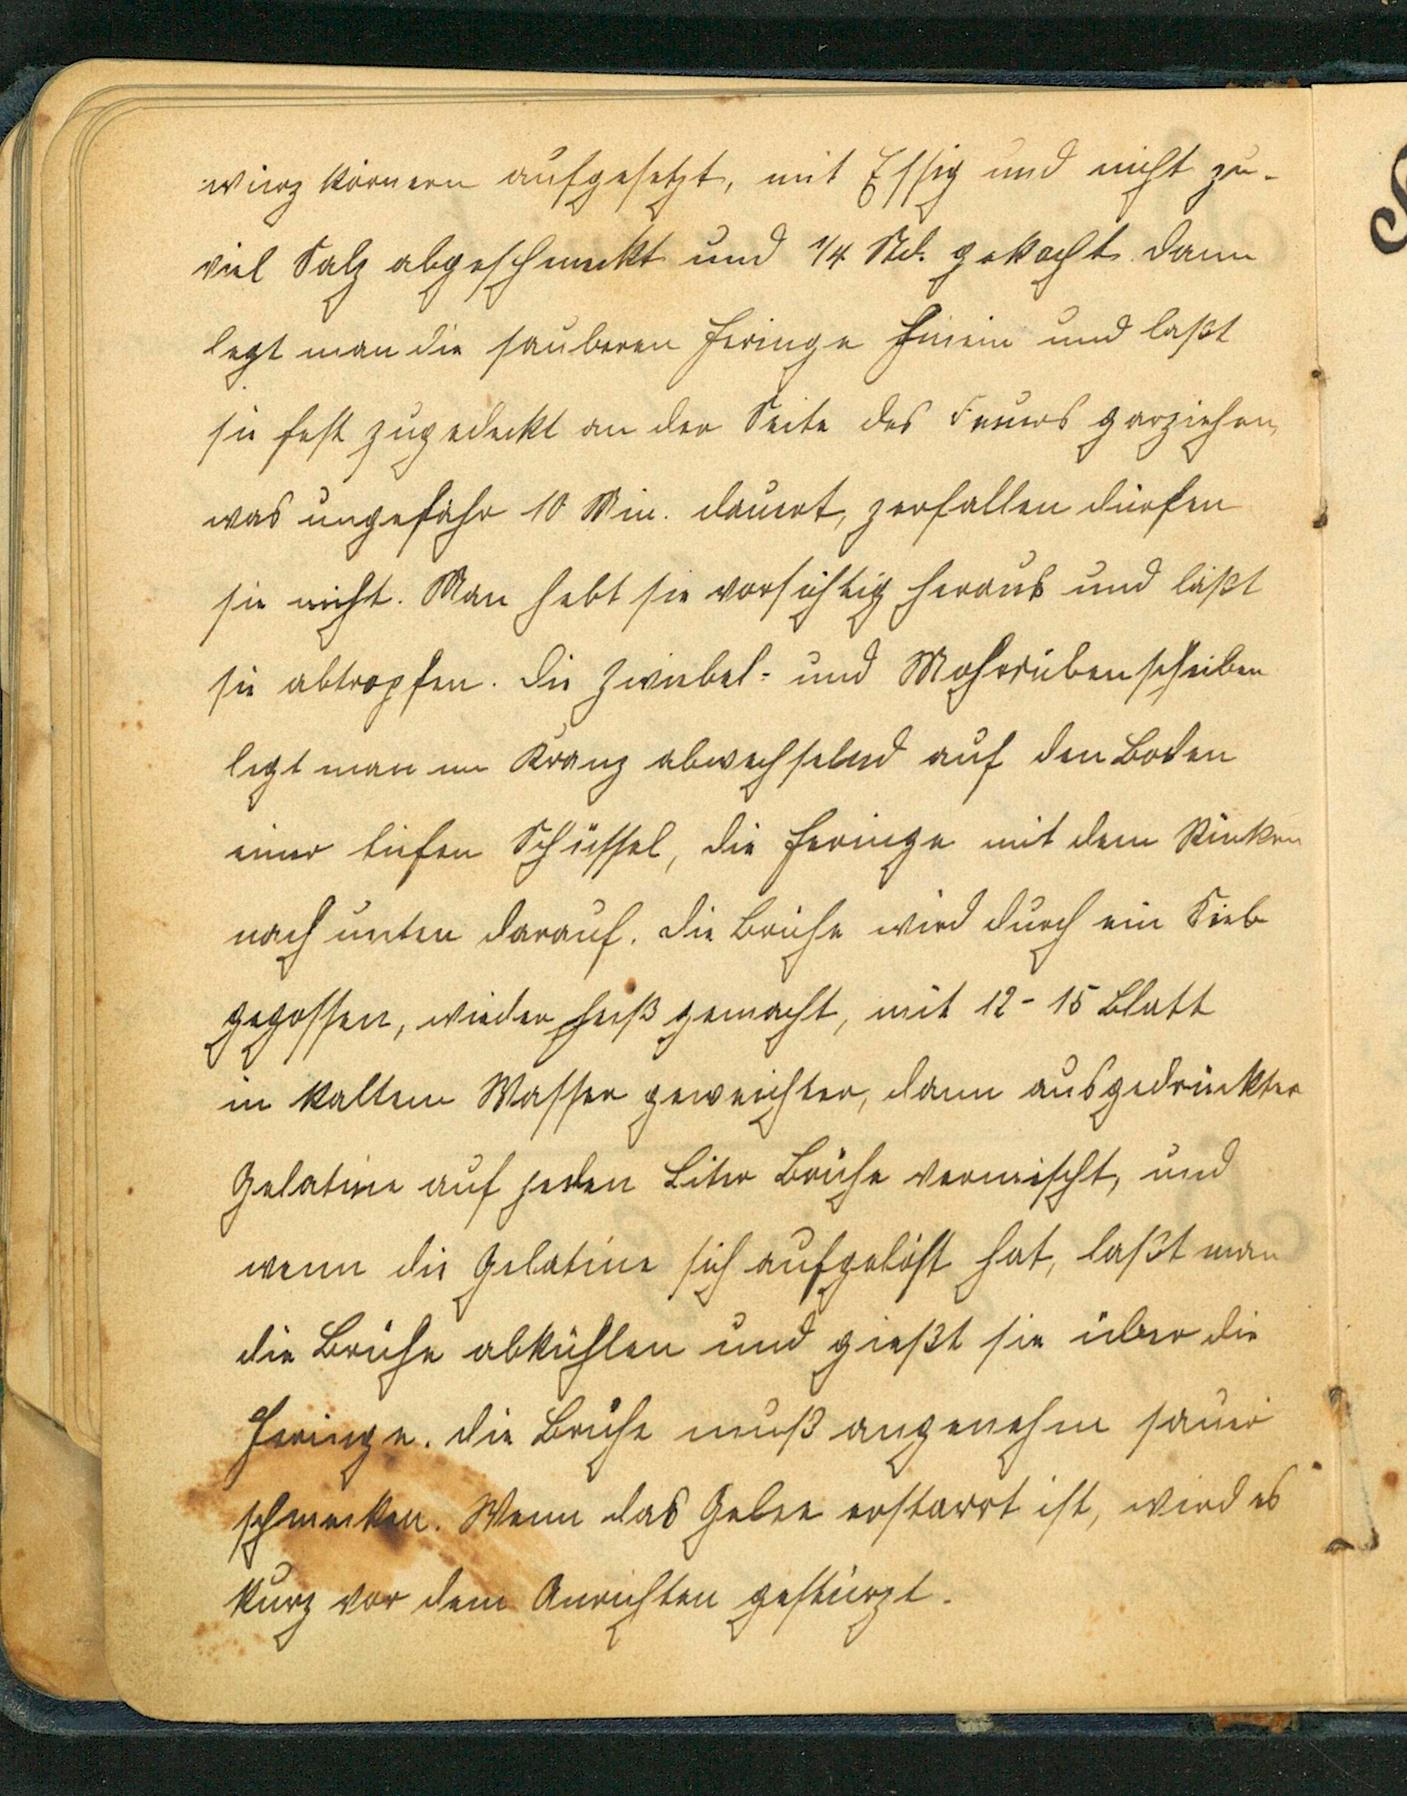 würzkörnern aufgesetzt, mit Essig und nicht zu-
viel Salz abgeschmeckt und 1/4 Std. gekocht. Dann
legt man die sauberen Heringe hinein und laßt
sie fest zugedeckt an der Seite des Feuers garziehen,
was ungefähr 10 Min. dauert, zerfallen dürfen
sie nicht. Man hebt sie vorsichtig heraus und läßt
sie abtropfen. Die Zwiebel- und Mohrrübenscheiben
legt man im Kranz abwechselnd auf den Boden
einer tiefen Schüssel, die Heringe mit dem Rücken
nach unten darauf. Die Brühe wird durch ein Sieb
gegossen, wieder heiß gemacht, mit 12-15 Blatt
in kaltem Wasser geweichter, dann ausgedrückter
Gelatine auf jeden Liter Brühe vermischt, und
wenn die Gelatine sich aufgelöst hat, laßt man
die Brühe abkühlen und gießt sie über die
Heringe. Die Brühe muß angenehm sauer
schmecken. Wenn das Gelee erstarrt ist, wird es
kurz vor dem Anrichten gestürzt.